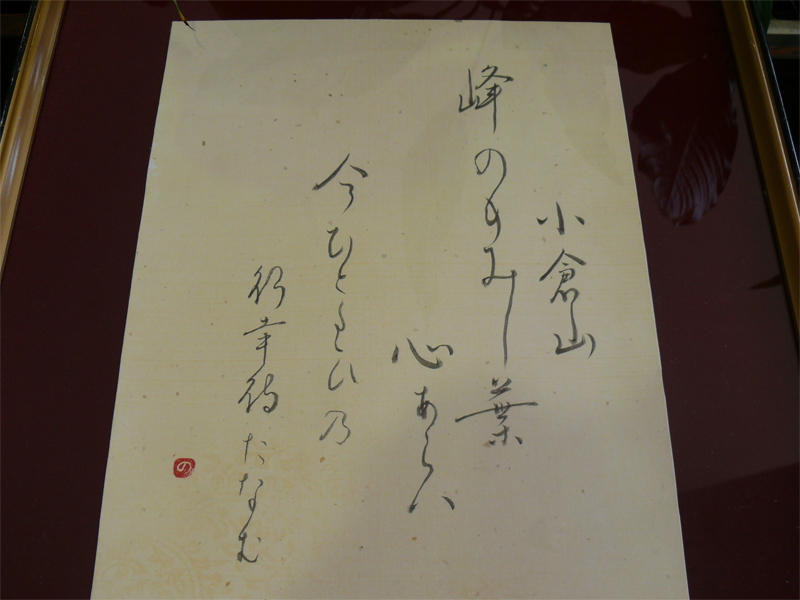 小倉山
峰のもみし葉
心あらハ
今ひとたひ乃
行幸待たなむ
の